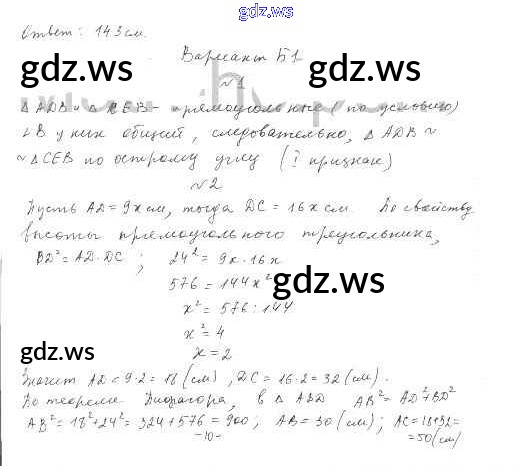 gdz.ws
Ответ: 14.3 см.
Вариант Б1
gdz.ws gdz.ws
№1
△ADB и △CEB - прямоугольные (по условию)
∠B у них общий, следовательно, △ADB ~
~ △CEB по острому углу (I признак)
№2
Пусть AD = 9x см, тогда DC = 16x см. По свойству
высоты прямоугольного треугольника,
BD² = AD · DC ; 24² = 9x · 16x
576 = 144x²
gdz.ws
x² = 576 : 144
x² = 4
gdz.ws
x = 2
Значит AD = 9 · 2 = 18 (см), DC = 16 · 2 = 32 (см).
По теореме Пифагора, в △ABD AB² = AD² + BD²
AB² = 18² + 24² = 324 + 576 = 900; AB = 30 (см); AC = 18 + 32 =
= 50 (см)
-10-
gdz.ws